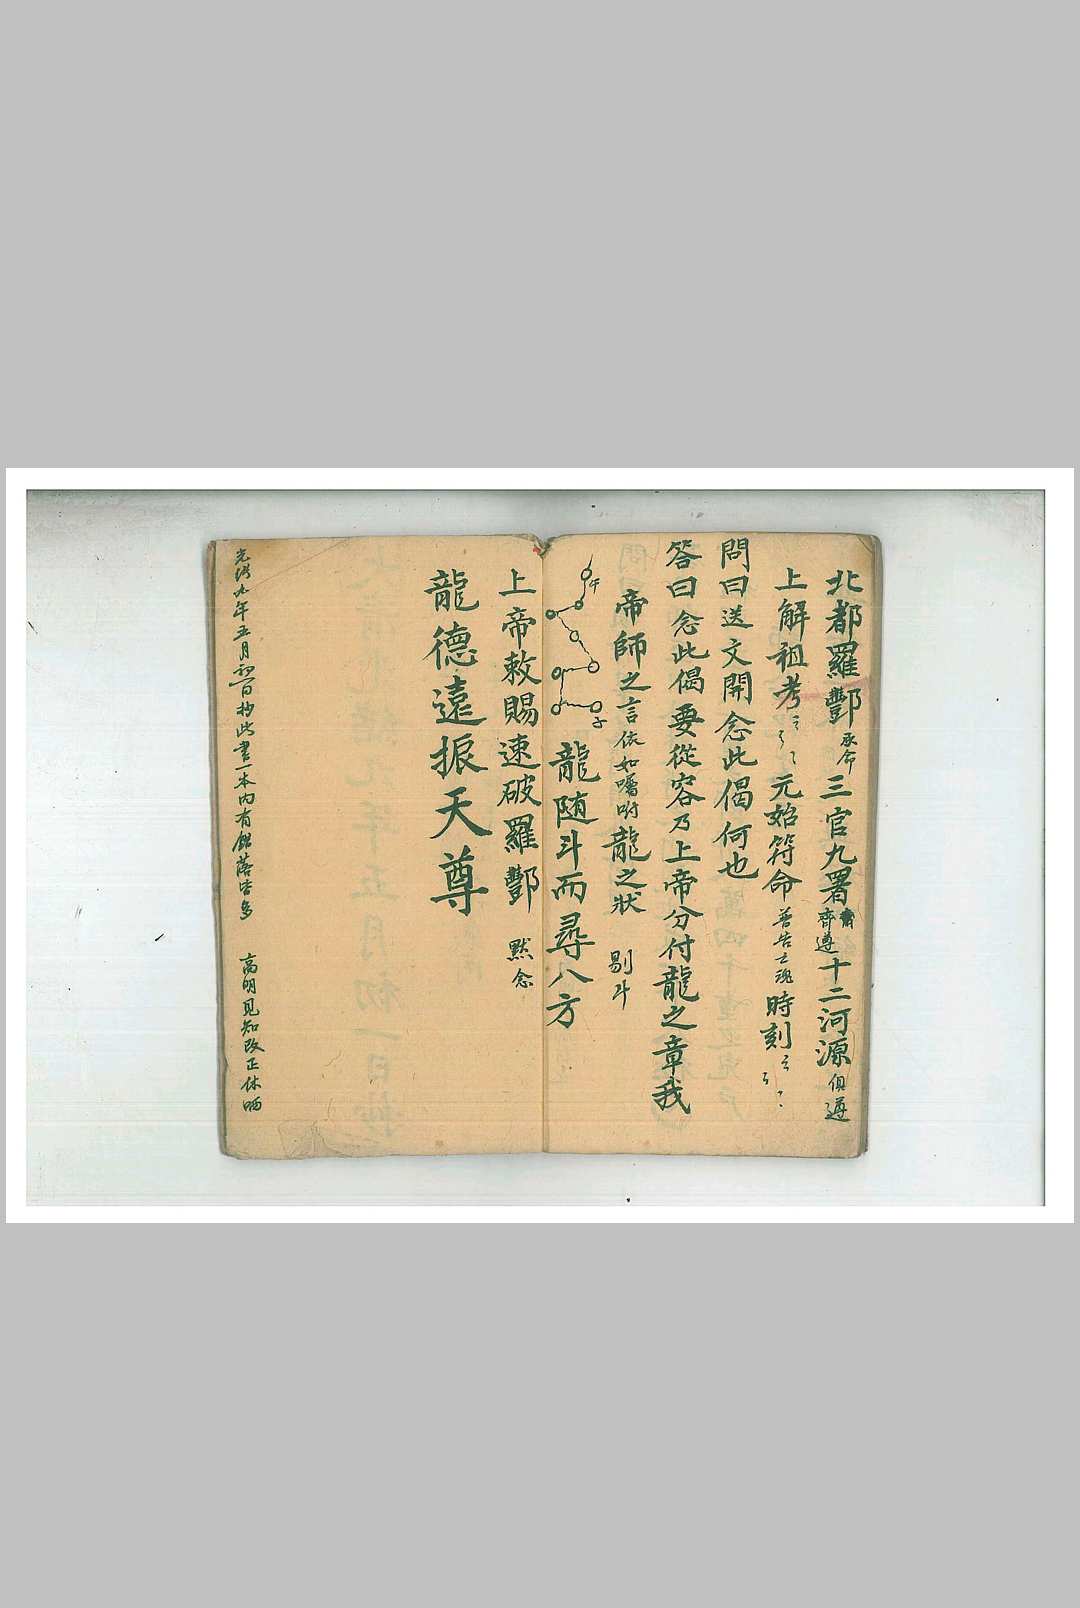 北都羅酆承命三官九署齊遵十二河源俱遵
上解祖考〻〻〻元始符命普告亡魂時刻〻〻〻
問曰送文開念此偈何也
答曰念此偈要從容乃上帝分付龍之章我
帝師之言依如囑咐龍之狀 剔斗
午
子
龍随斗而尋八方
上帝敕賜速破羅酆 默念
龍德遠振天尊
光緒九年五月初一日抄此書一本內有錯落字多 高明見知改正休哂